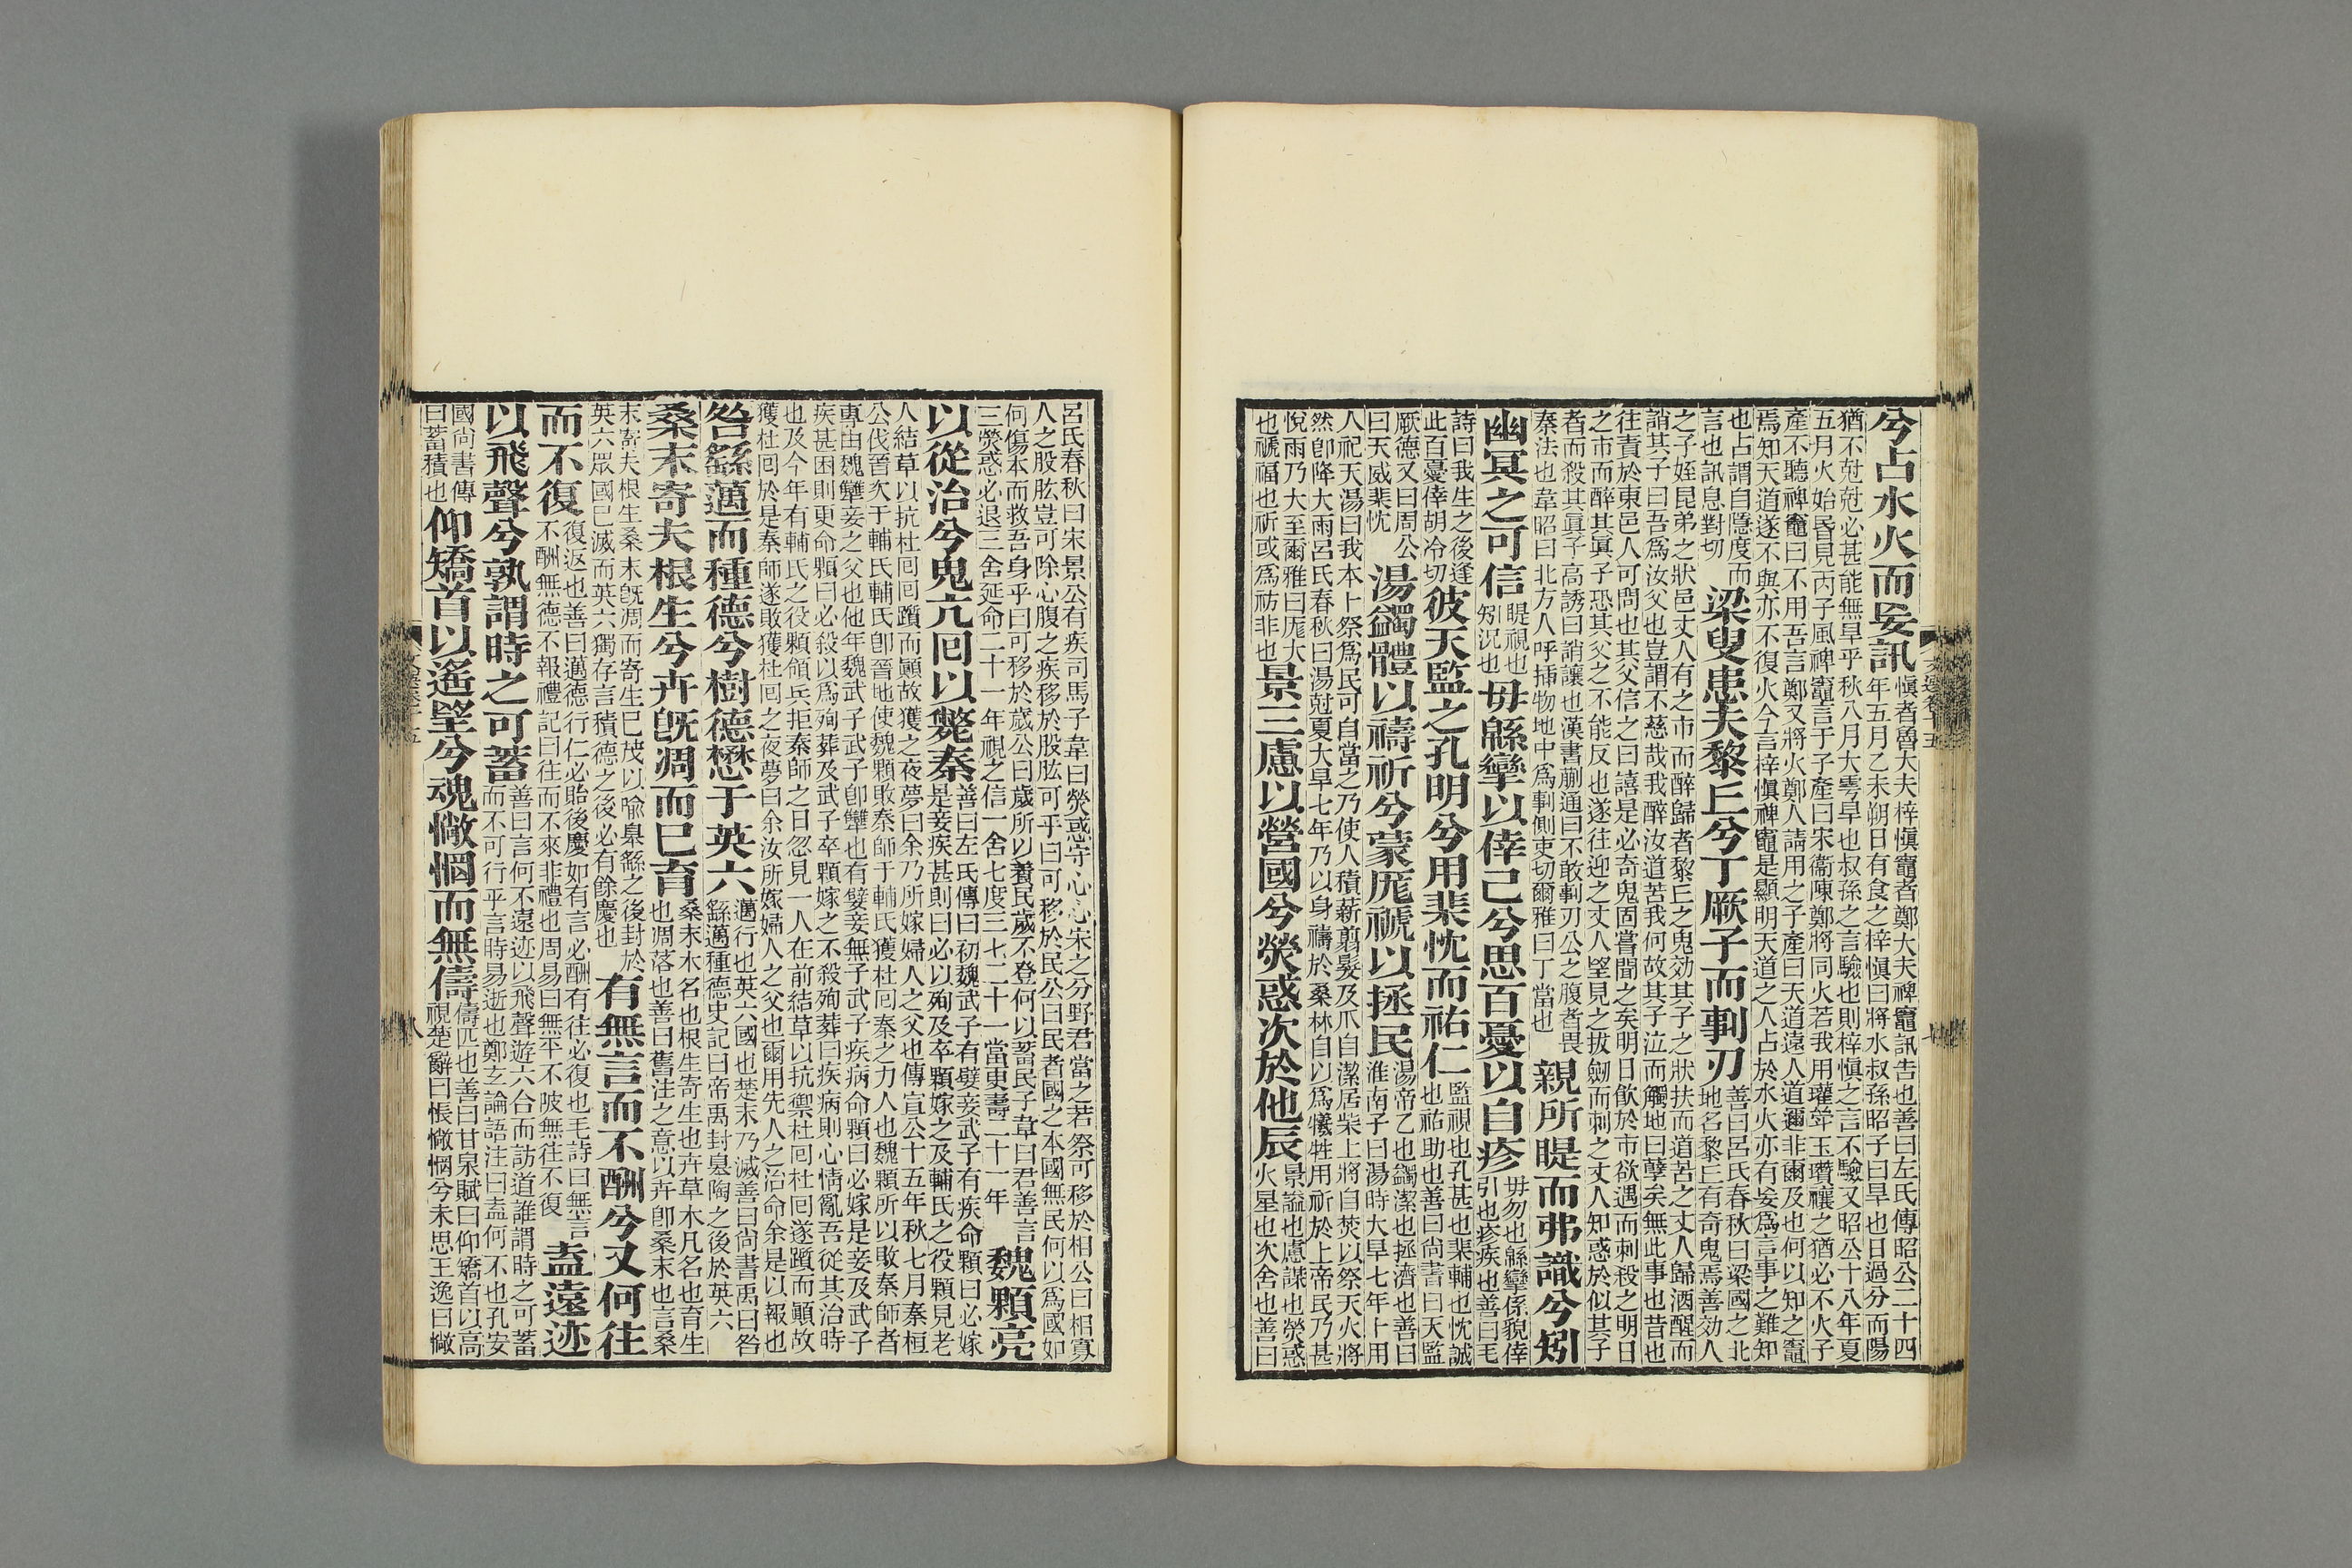 兮占水火而妄訊
慎者魯大夫梓慎竈者鄭大夫裨竈訊告也善曰左氏傳昭公二十四
年五月乙未朔日有食之梓慎曰將水叔孫昭子曰旱也日過分而陽
猶不尅尅必甚能無旱乎秋八月大雩旱也叔孫之言驗也則梓慎之言不驗又昭公十八年夏
五月火始昏見丙子風裨竈言于子產曰宋衞陳鄭將同火若我用瓘斝玉瓚禳之猶必不火子
產不聽裨竈曰不用吾言鄭又將火鄭人請用之子產曰天道遠人道邇非爾及也何以知之竈
焉知天道遂不與亦不復火今言梓慎裨竈是顯明天道之人占於水火亦有妄爲言事之難知
也占謂自隱度而
言也訊息對切
梁叟患夫黎丘兮丁厥子而剚刃
善曰呂氏春秋曰梁國之北
地名黎丘有奇鬼焉善効人
之子姪昆弟之狀邑丈人有之市而醉歸者黎丘之鬼効其子之狀扶而道苦之丈人歸酒醒而
誚其子曰吾爲汝父也豈謂不慈哉我醉汝道苦我何故其子泣而觸地曰孽矣無此事也昔也
往責於東邑人可問也其父信之曰譆是必奇鬼固嘗聞之矣明日飲於市欲遇而刺殺之明日
之市而醉其眞子恐其父之不能反也遂往迎之丈人望見之拔劒而刺之丈人知惑於似其子
者而殺其眞子高誘曰誚讓也漢書蒯通曰不敢剚刃公之腹者畏
秦法也韋昭曰北方人呼揷物地中爲剚側吏切爾雅曰丁當也
親所睼而弗識兮矧
幽冥之可信
睼視也
矧況也
毋緜攣以倖己兮思百憂以自疹
毋勿也緜攣係貌倖
引也疹疾也善曰毛
詩曰我生之後逢
此百憂倖胡冷切
彼天監之孔明兮用棐忱而祐仁
監視也孔甚也棐輔也忱誠
也祐助也善曰尚書曰天監
厥德又曰周公
曰天威棐忱
湯蠲體以禱祈兮蒙厖禠以拯民
湯帝乙也蠲潔也拯濟也善曰
淮南子曰湯時大旱七年卜用
人祀天湯曰我本卜祭爲民可自當之乃使人積薪翦髮及爪自潔居柴上將自焚以祭天火將
然卽降大雨呂氏春秋曰湯尅夏大旱七年乃以身禱於桑林自以爲犧牲用祈於上帝民乃甚
悅雨乃大至爾雅曰厖大
也禠福也祈或爲祊非也
景三慮以營國兮熒惑次於他辰
景謚也慮謀也熒惑
火星也次舍也善曰
呂氏春秋曰宋景公有疾司馬子韋曰熒惑守心心宋之分野君當之若祭可移於相公曰相寡
人之股肱豈可除心腹之疾移於股肱可乎曰可移於民公曰民者國之本國無民何以爲國如
何傷本而救吾身乎曰可移於歲公曰歲所以養民歲不登何以畜民子韋曰君善言
三熒惑必退三舍延命二十一年視之信一舍七度三七二十一當更壽二十一年
魏顆亮
以從治兮鬼亢回以斃秦
善曰左氏傳曰初魏武子有嬖妾武子有疾命顆曰必嫁
是妾疾甚則曰必以殉及卒顆嫁之及輔氏之役顆見老
人結草以抗杜回回躓而顚故獲之夜夢曰余乃所嫁婦人之父也傳宣公十五年秋七月秦桓
公伐晉次于輔氏輔氏卽晉地使魏顆敗秦師于輔氏獲杜回秦之力人也魏顆所以敗秦師者
專由魏犫妾之父也他年魏武子武子卽犫也有嬖妾無子武子疾病命顆曰必嫁是妾及武子
疾甚困則更命顆曰必殺以爲殉葬及武子卒顆嫁之不殺殉葬曰疾病則心情亂吾從其治時
也及今年有輔氏之役顆領兵拒秦師之日忽見一人在前結草以抗禦杜回杜回遂躓而顚故
獲杜回於是秦師遂敗獲杜回之夜夢曰余汝所嫁婦人之父也爾用先人之治命余是以報也
咎繇邁而種德兮樹德懋于英六
邁行也英六國也楚末乃滅善曰尚書禹曰咎
繇邁種德史記曰帝禹封皋陶之後於英六
桑末寄夫根生兮卉旣凋而已育
桑末木名也根生寄生也卉草木凡名也育生
也凋落也善曰舊注之意以卉卽桑末也言桑
末寄夫根生桑末旣凋而寄生已茂以喻臯繇之後封於
英六眾國已滅而英六獨存言積德之後必有餘慶也
有無言而不酬兮又何往
而不復
復返也善曰邁德行仁必貽後慶如有言必酬有往必復也毛詩曰無言
不酬無德不報禮記曰往而不來非禮也周易曰無平不陂無往不復
盍遠迹
以飛聲兮孰謂時之可蓄
善曰言何不遠迹以飛聲遊六合而訪道誰謂時之可蓄
而不可行乎言時易逝也鄭玄論語注曰盍何不也孔安
國尚書傳
曰蓄積也
仰矯首以遙望兮魂懒惘而無儔
儔匹也善曰甘泉賦曰仰矯首以高
視楚辭曰悵懒惘兮永思王逸曰懒